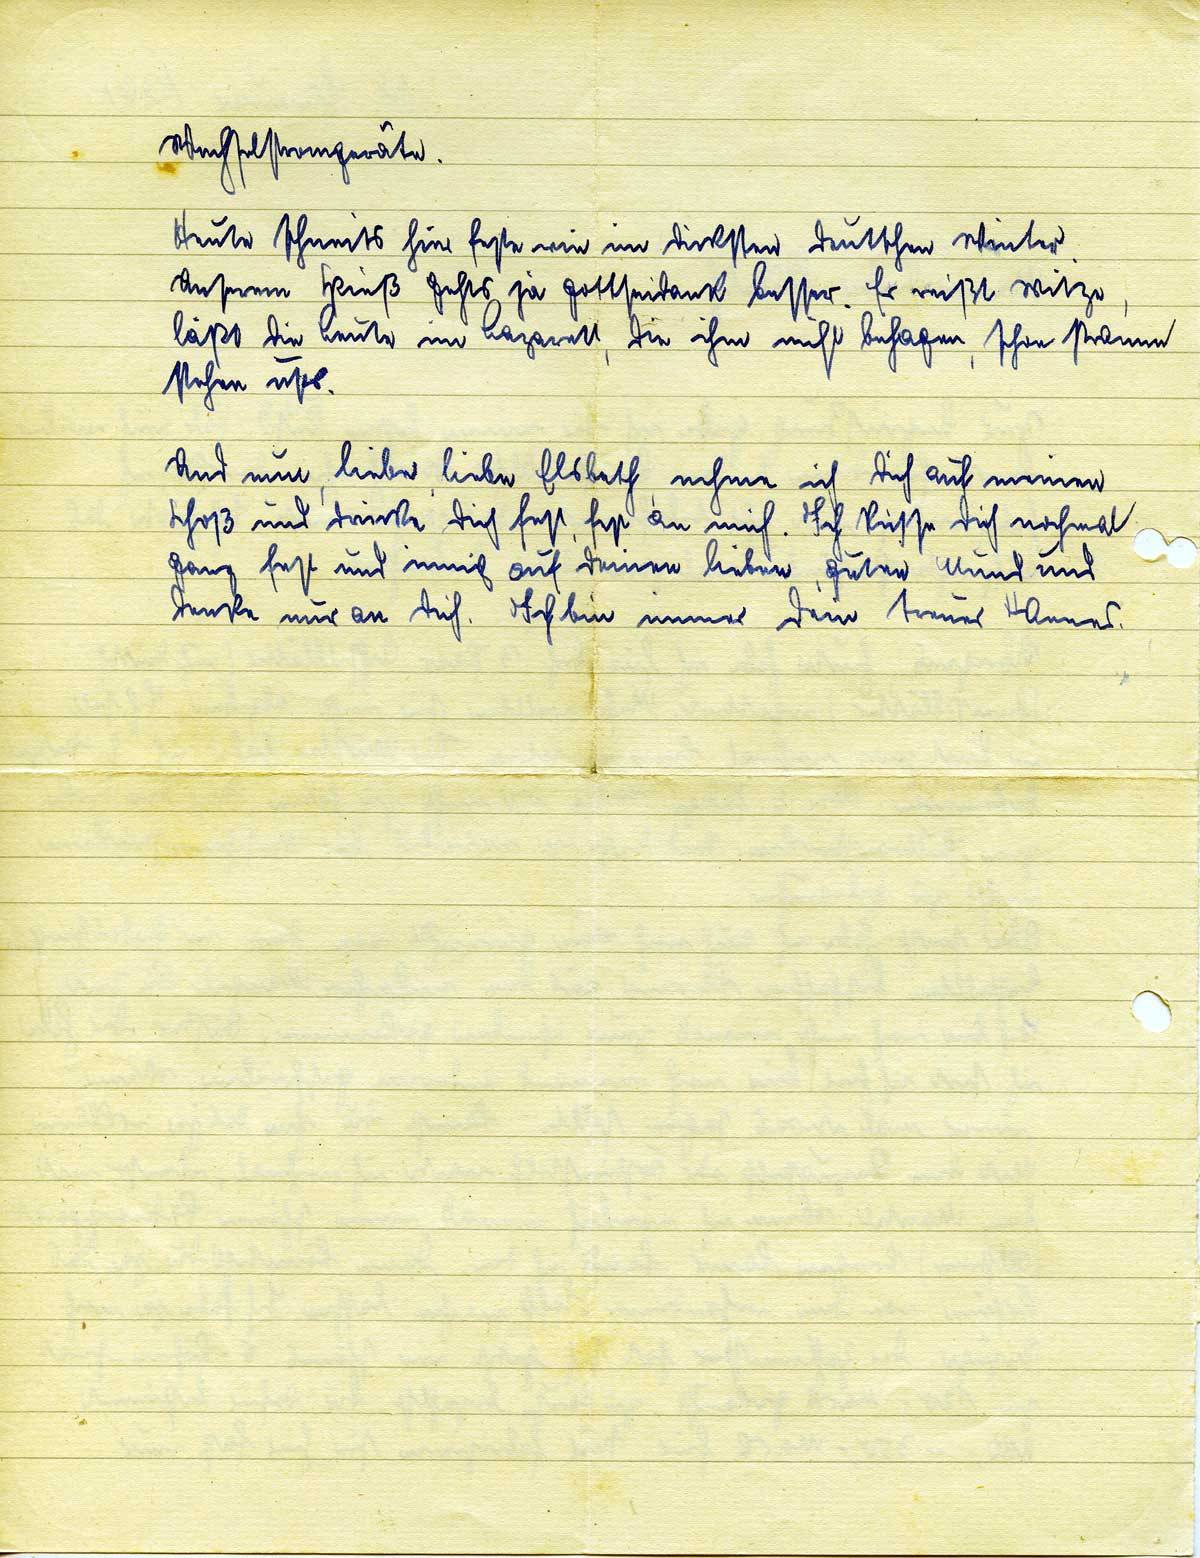 Wechselstromgeräte.
Heute schneits hier feste wie im dicksten deutschen Winter.
Unserem Spieß gehts ja gottseidank besser. Er reißt Witze,
läßt die Leute im Lazarett, die ihm nicht behagen, schon stramm
stehen usw.
Und nun, liebe, liebe Elsbeth, nehme ich Dich auf meinen
Schoß und drücke Dich fest, fest an mich. Ich küsse Dich nochmal
ganz fest und innig auf deinen lieben, guten Mund und
denke nur an Dich. Ich bin immer Dein treuer Hannes.